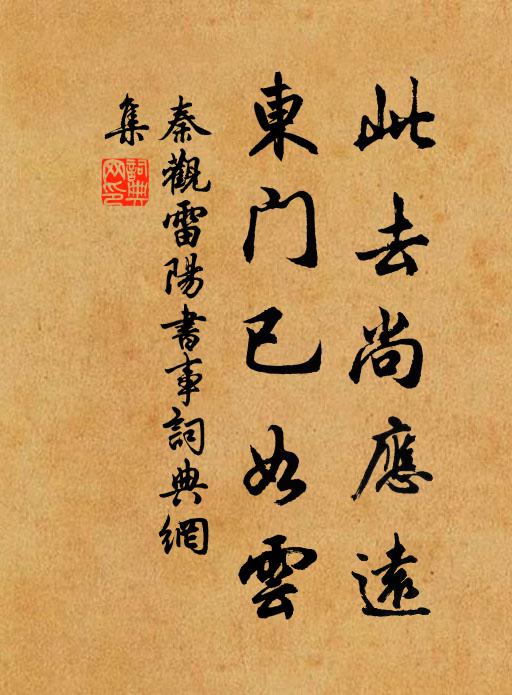 此去尚應遠
東门已如雲
秦觀雷陽書事詞典網
集
詞典网印